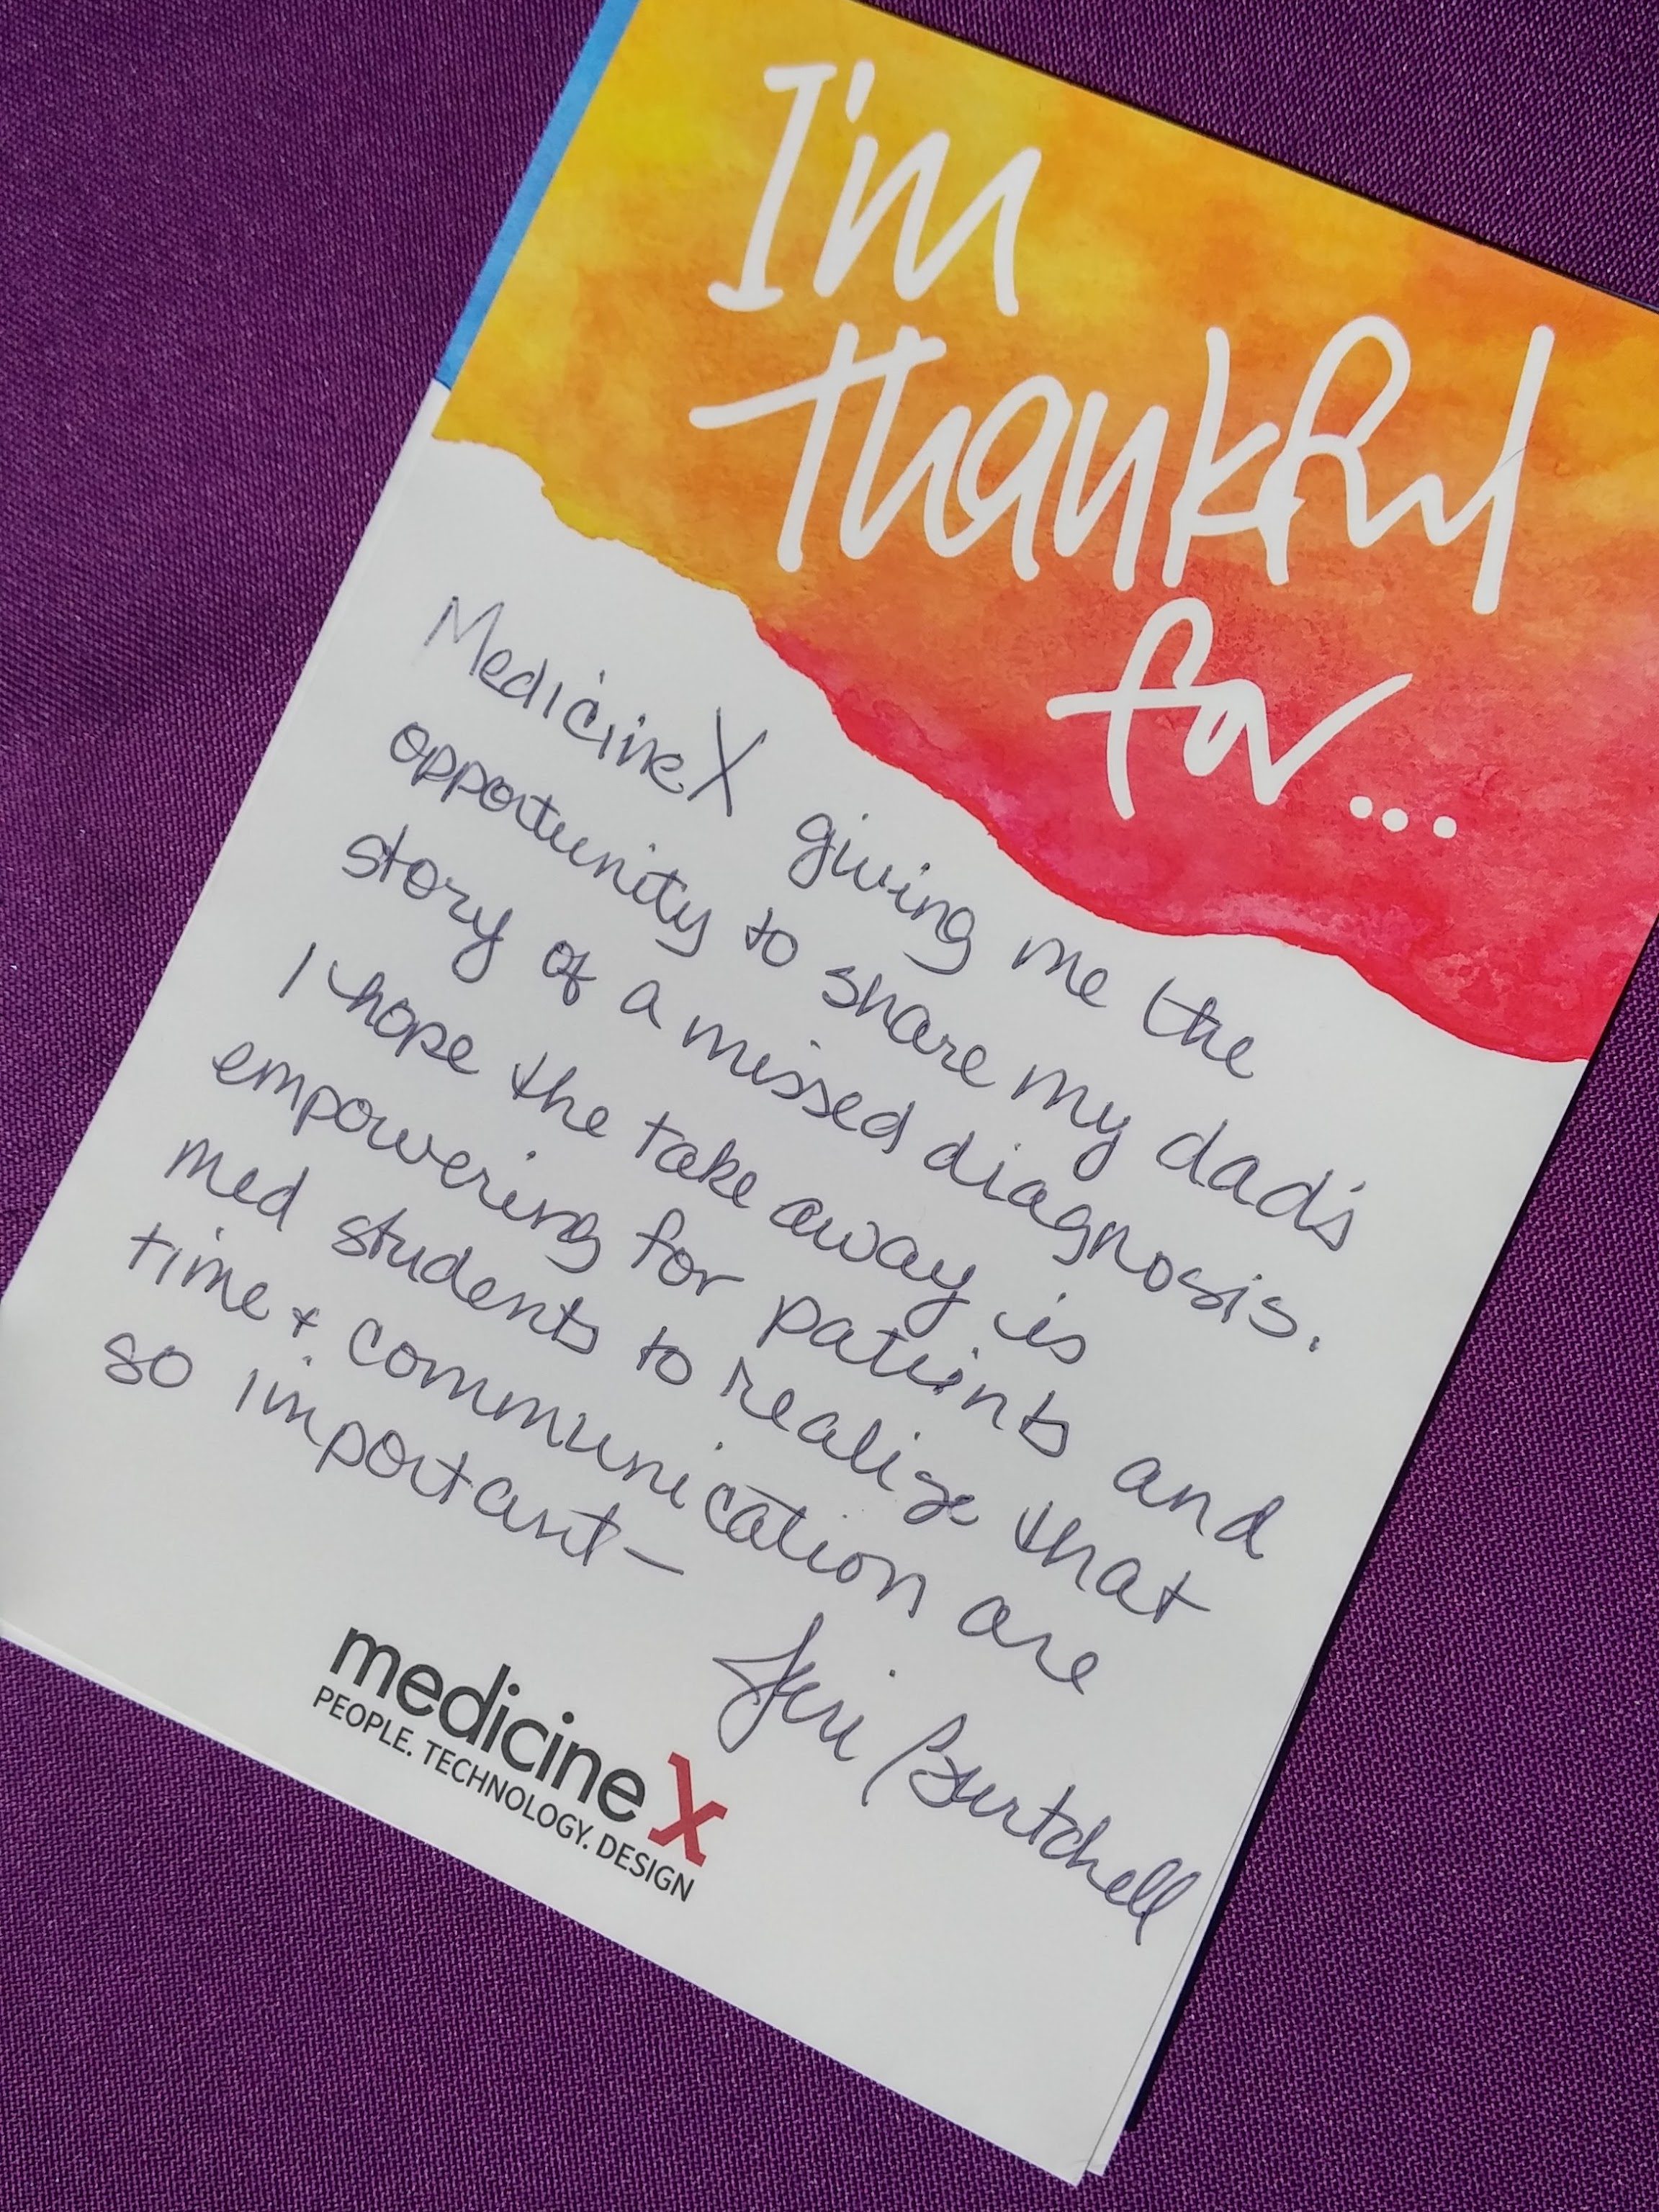 I'm
thankful
for...
MedicineX giving me the
opportunity to share my dad's
story of a missed diagnosis.
I hope the take away is
empowering for patients and
med students to realize that
time + communication are
so important—
Jeri Burtchell
medicine X
PEOPLE. TECHNOLOGY. DESIGN